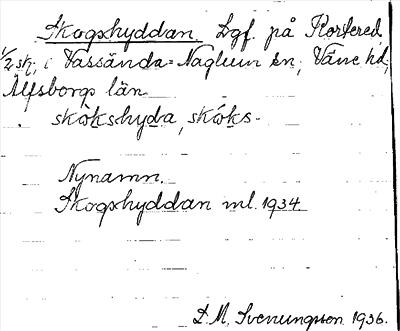 Skogshyddan. Lgf. på Korfered
1/2 sk, i Vassända-Naglum sn, Väne hd,
Älfsborgs län.
skòkshyda, skóks-
Nynamn.
Skogshyddan ml. 1934.
D. M. Svenungsson 1936.